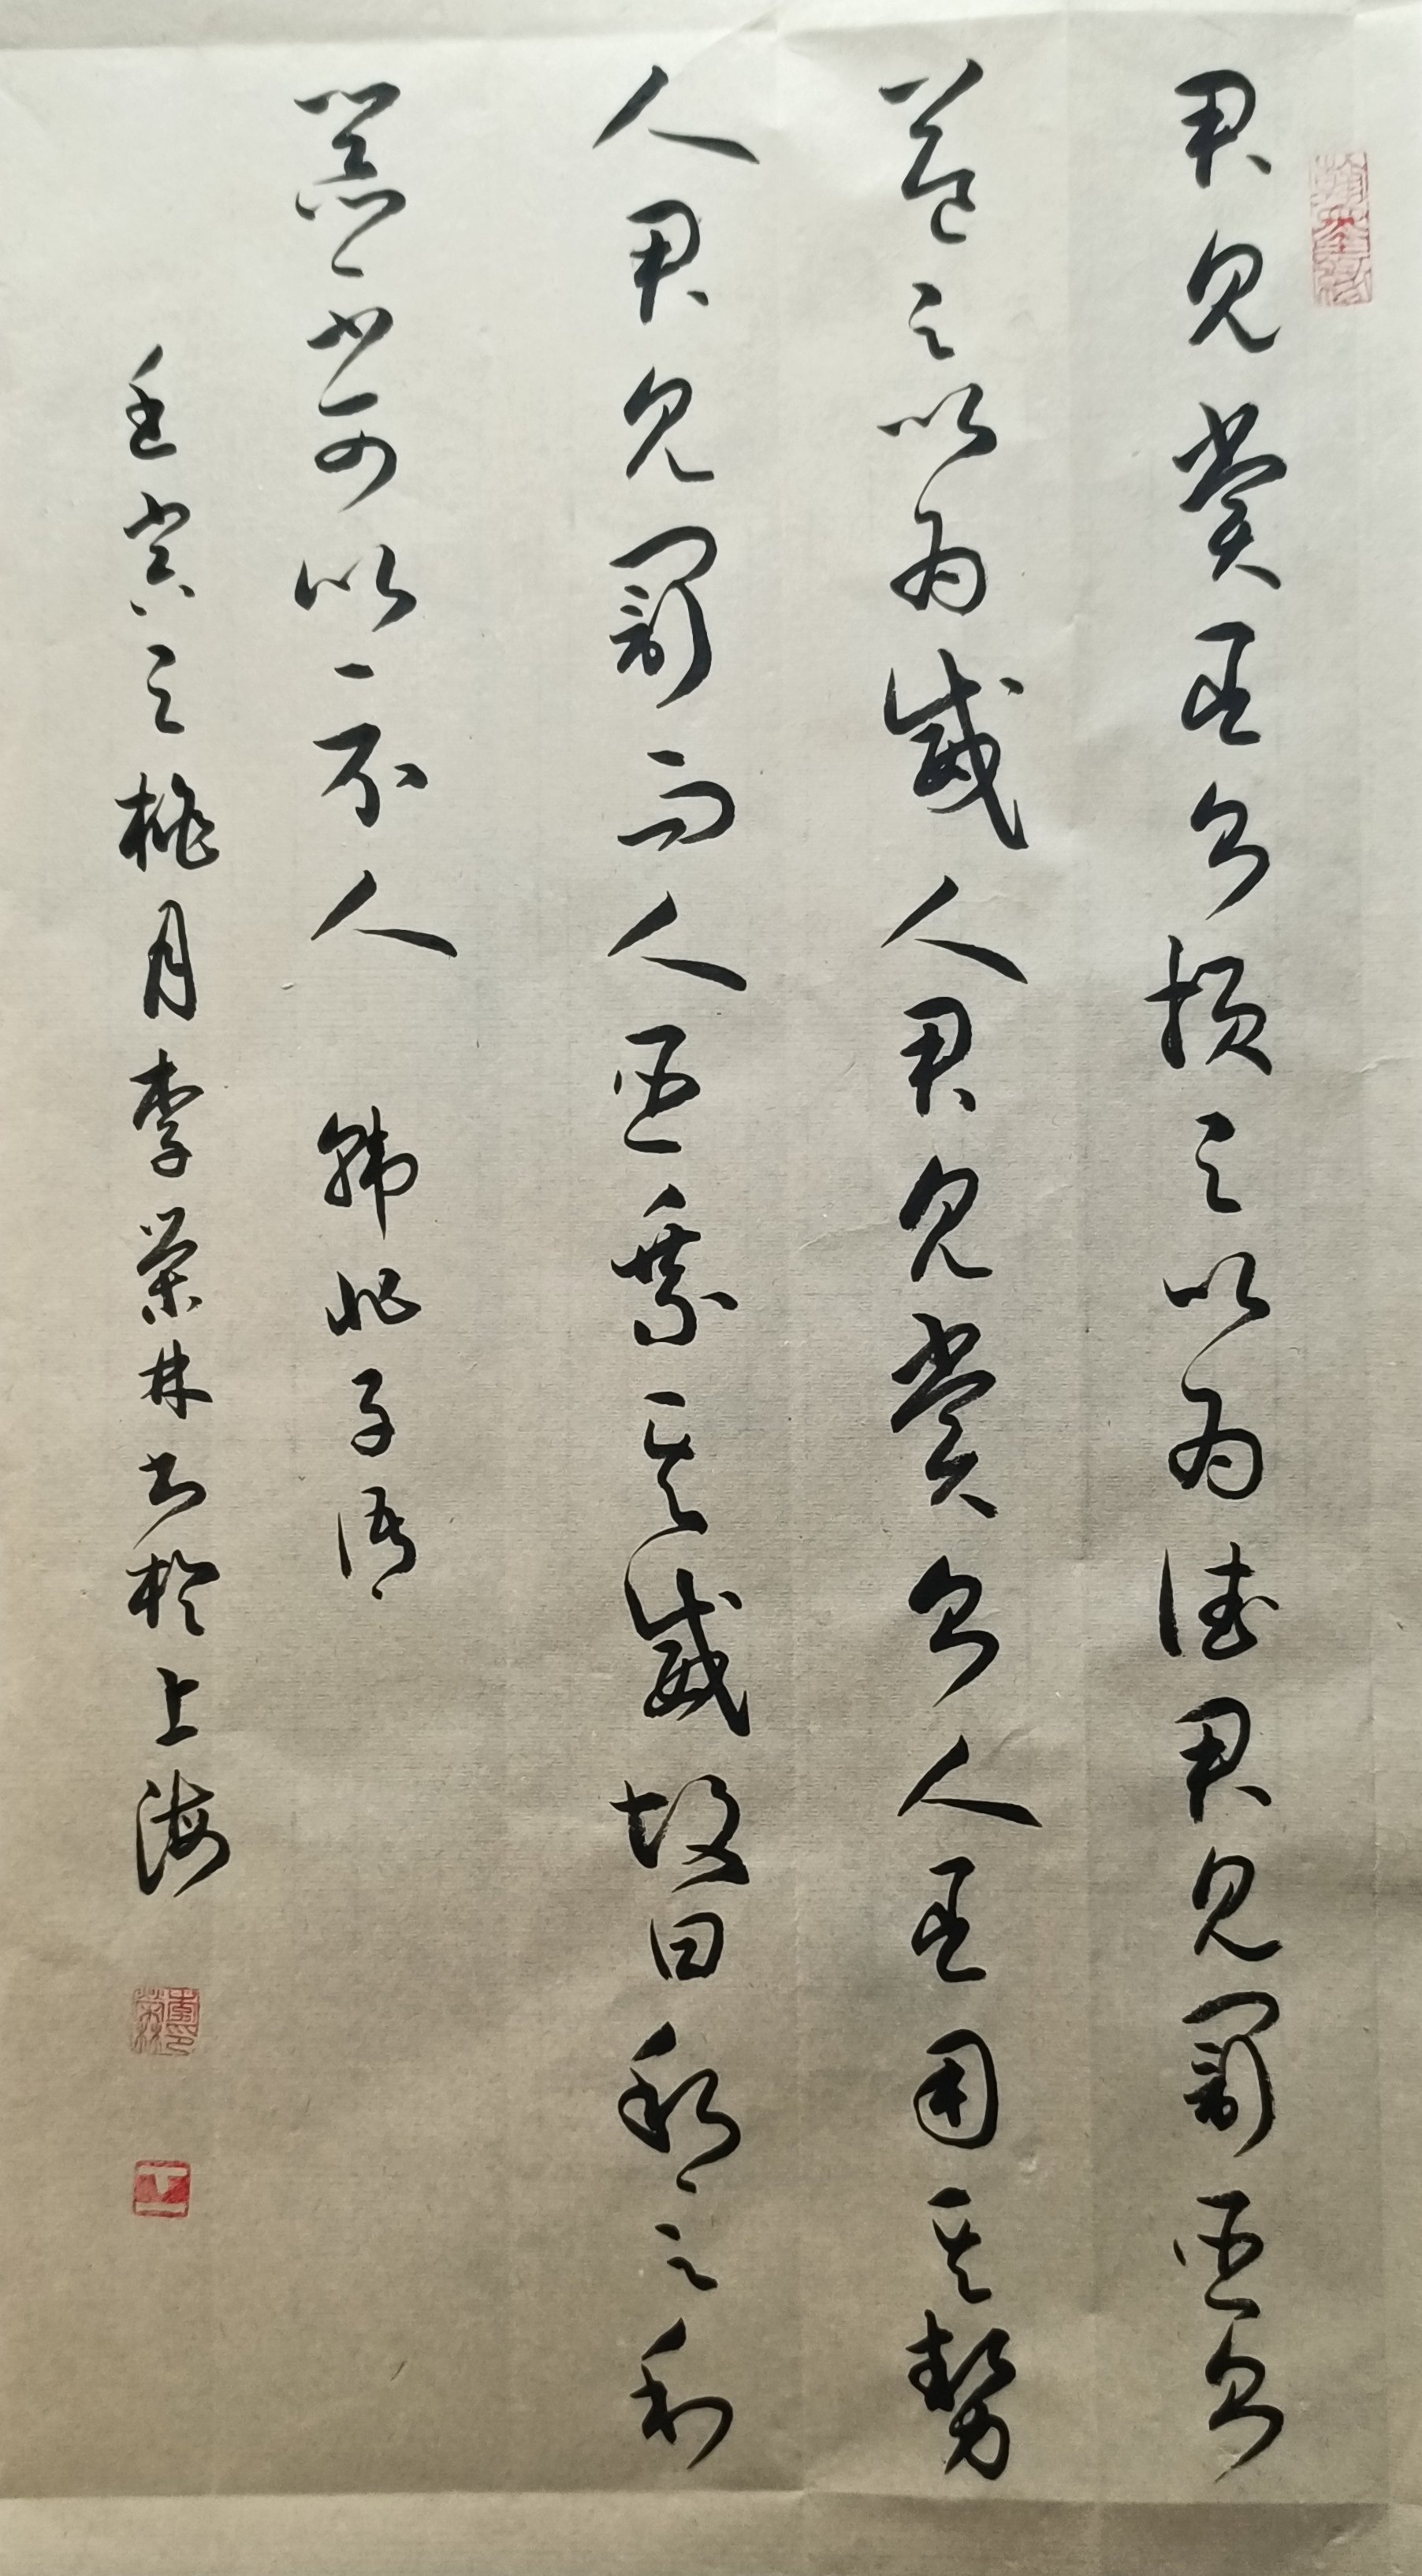 君見賞臣則損之以為德君見罰臣則
益之以為威人君見賞則人臣用其勢
人君見罰而人臣乘其威故曰邦之利
器不可以示人 韓非子語
壬寅之桃月李榮林書於上海